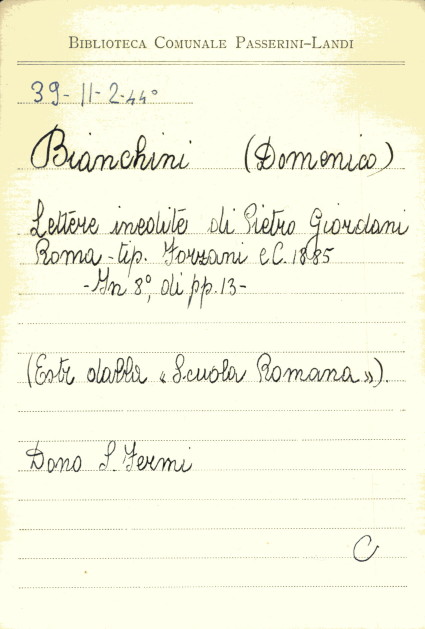 BIBLIOTECA COMUNALE PASSERINI-LANDI
39-11-2-44°
Bianchini (Domenico)
Lettere inedite di Pietro Giordani
Roma - tip. Forzani e C. 1885
- In 8°, di pp. 13 -
(Estr dalla « Scuola Romana »).
Dono S. Fermi
C